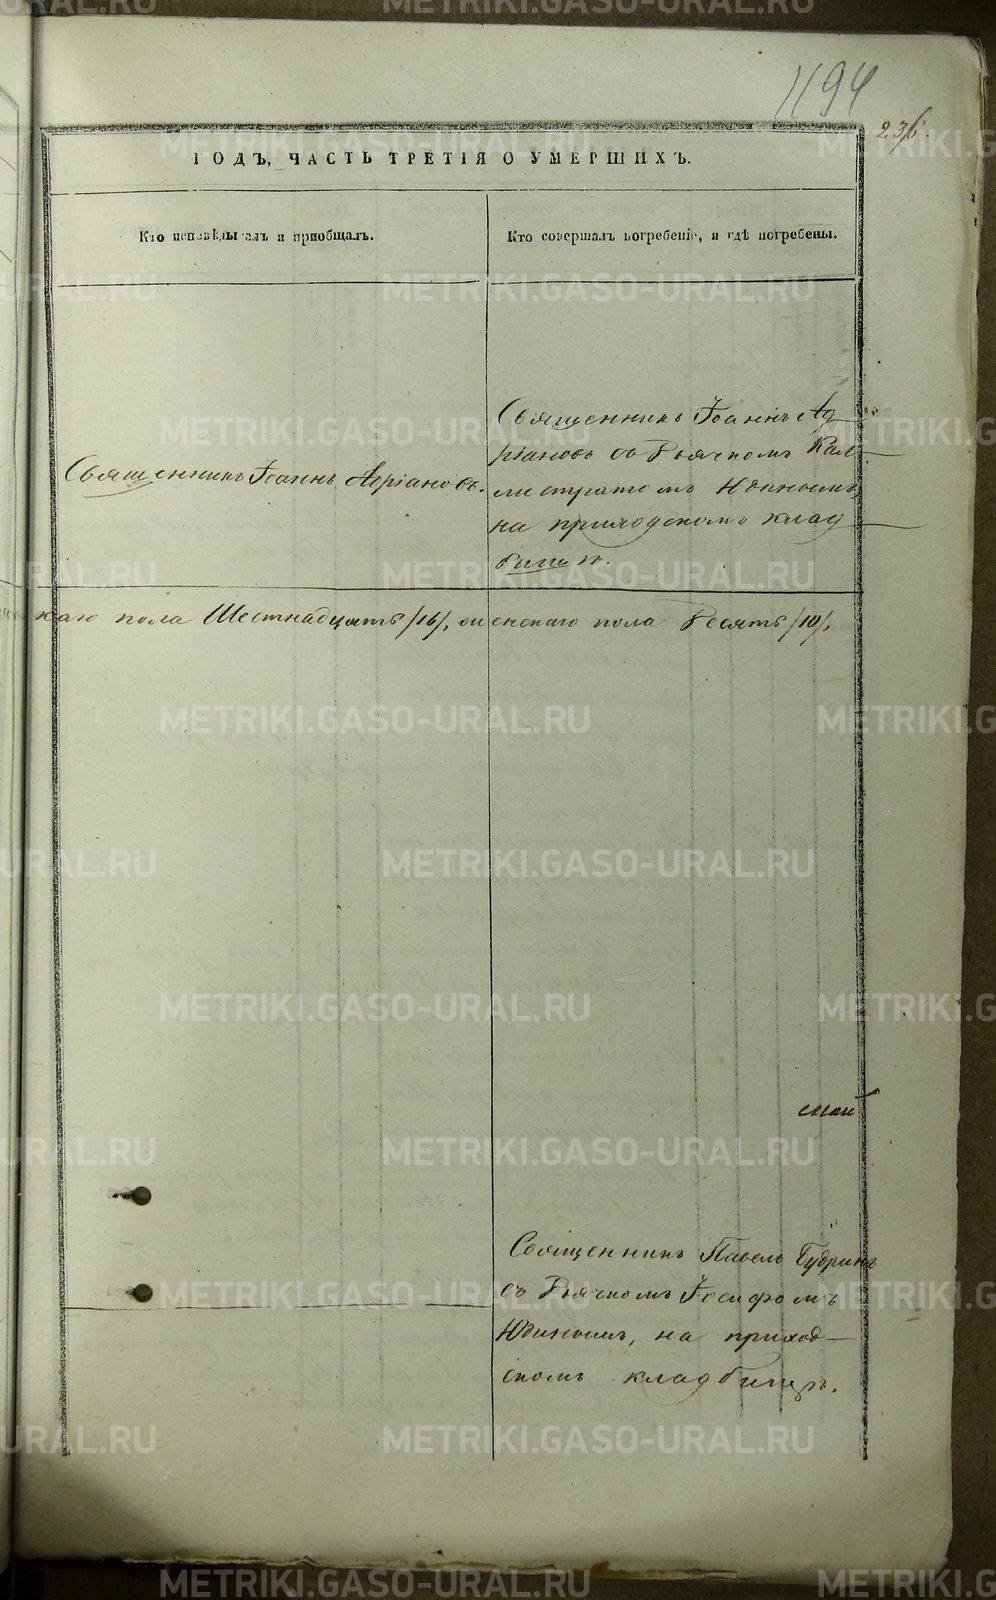 1194
236.
ГОДЪ, ЧАСТЬ ТРЕТІЯ О УМЕРШИХЪ.
Кто исповѣдывалъ и пріобщалъ.
Кто совершалъ погребеніе, и гдѣ погребены.
Священникъ Іоаннъ Адріановъ.
Священникъ Іоаннъ Ад
ріановъ съ Дьячкомъ Кал
листратомъ Юдинымъ,
на приходскомъ клад
бищѣ.
каго пола Шестнадцать /16/, женскаго пола Десять /10/.
Священникъ Павелъ Будринъ
съ Дьячкомъ Іосифомъ
Юдинымъ, на приход
скомъ кладбищѣ.
METRIKI.GASO-URAL.RU